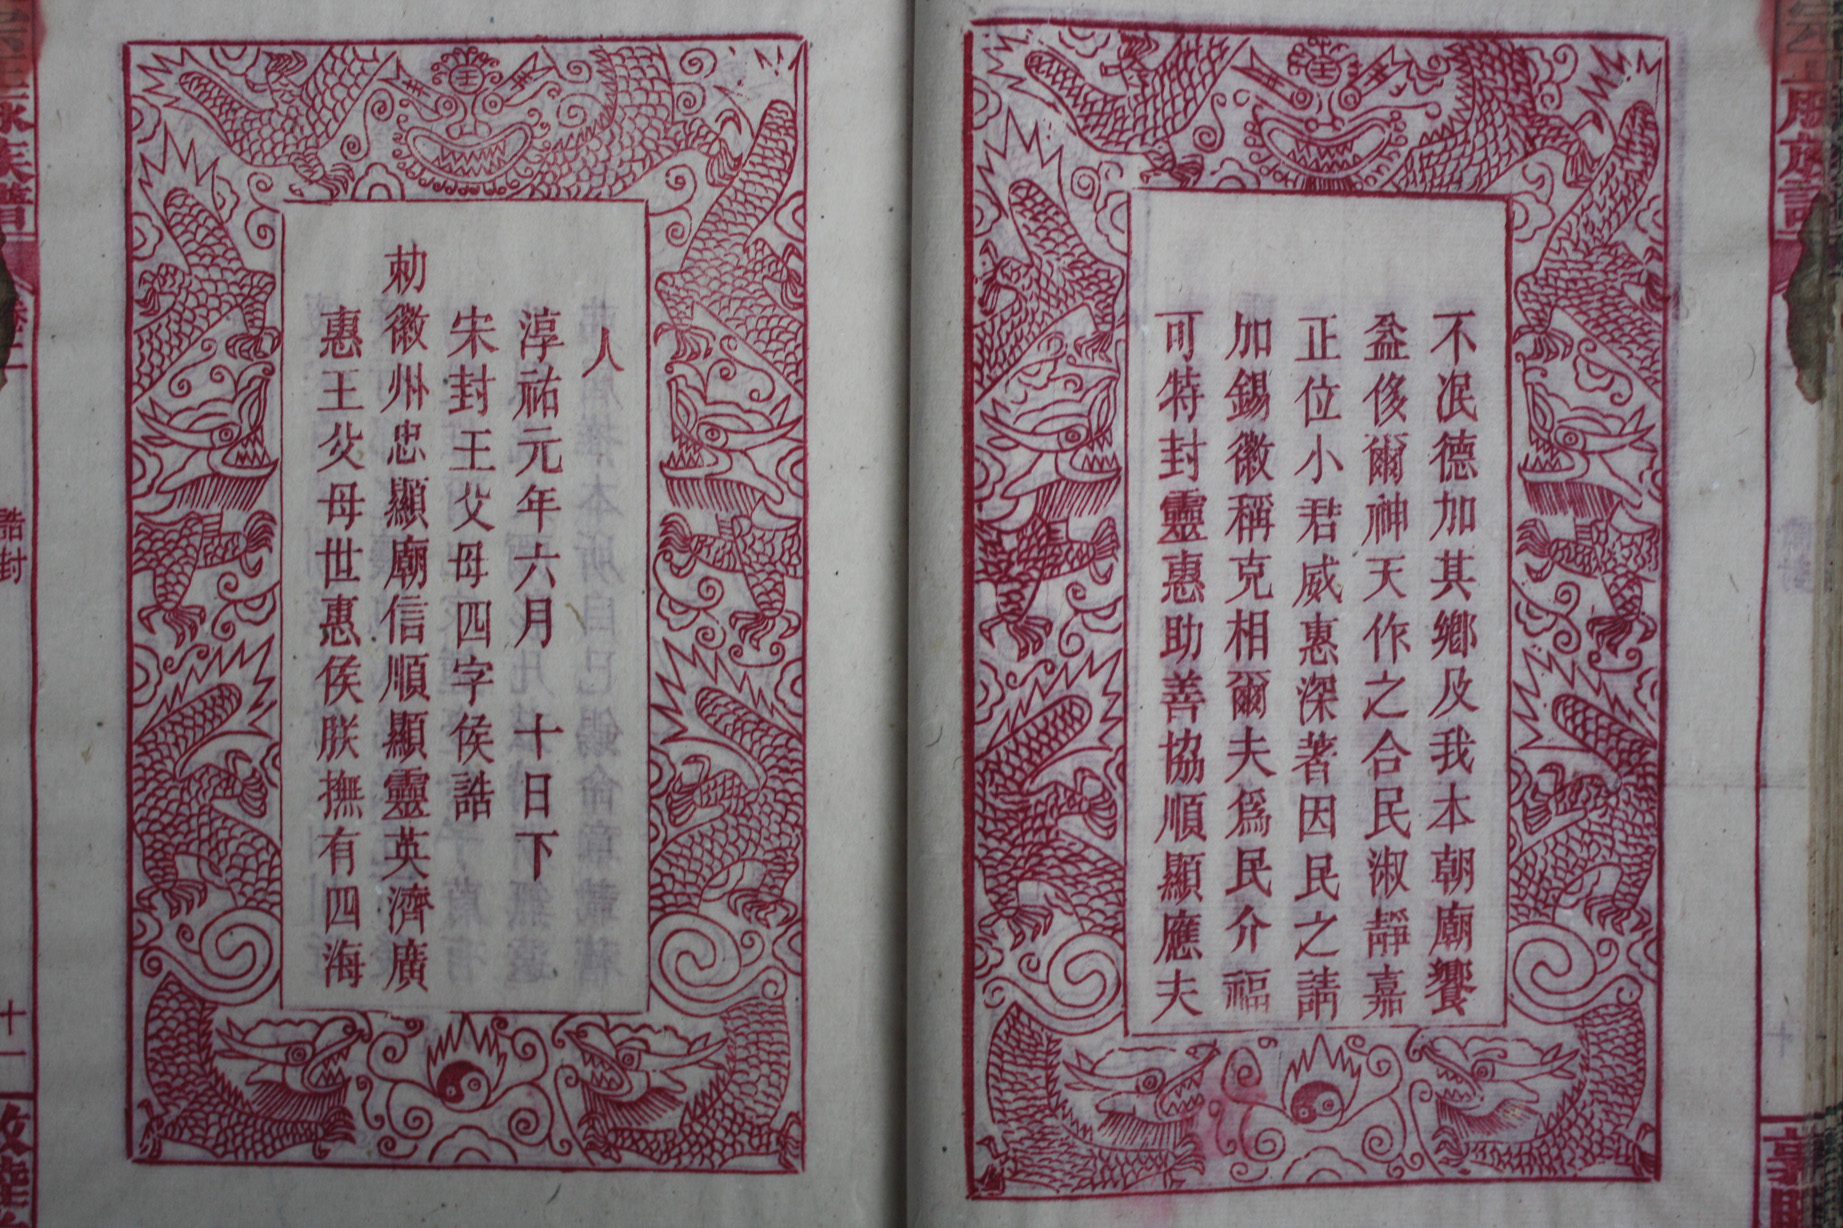 不泯德加其鄉及我本朝廟饗
益侈爾神天作之合民淑靜嘉
正位小君威惠深著因民之請
加錫徽稱克相爾夫為民介福
可特封靈惠助善協順顯應夫
人
淳祐元年六月　十日下
宋封王父母四字侯誥
勑徽州忠顯廟信順顯靈英濟廣
惠王父母世惠侯朕撫有四海
誥封
十一